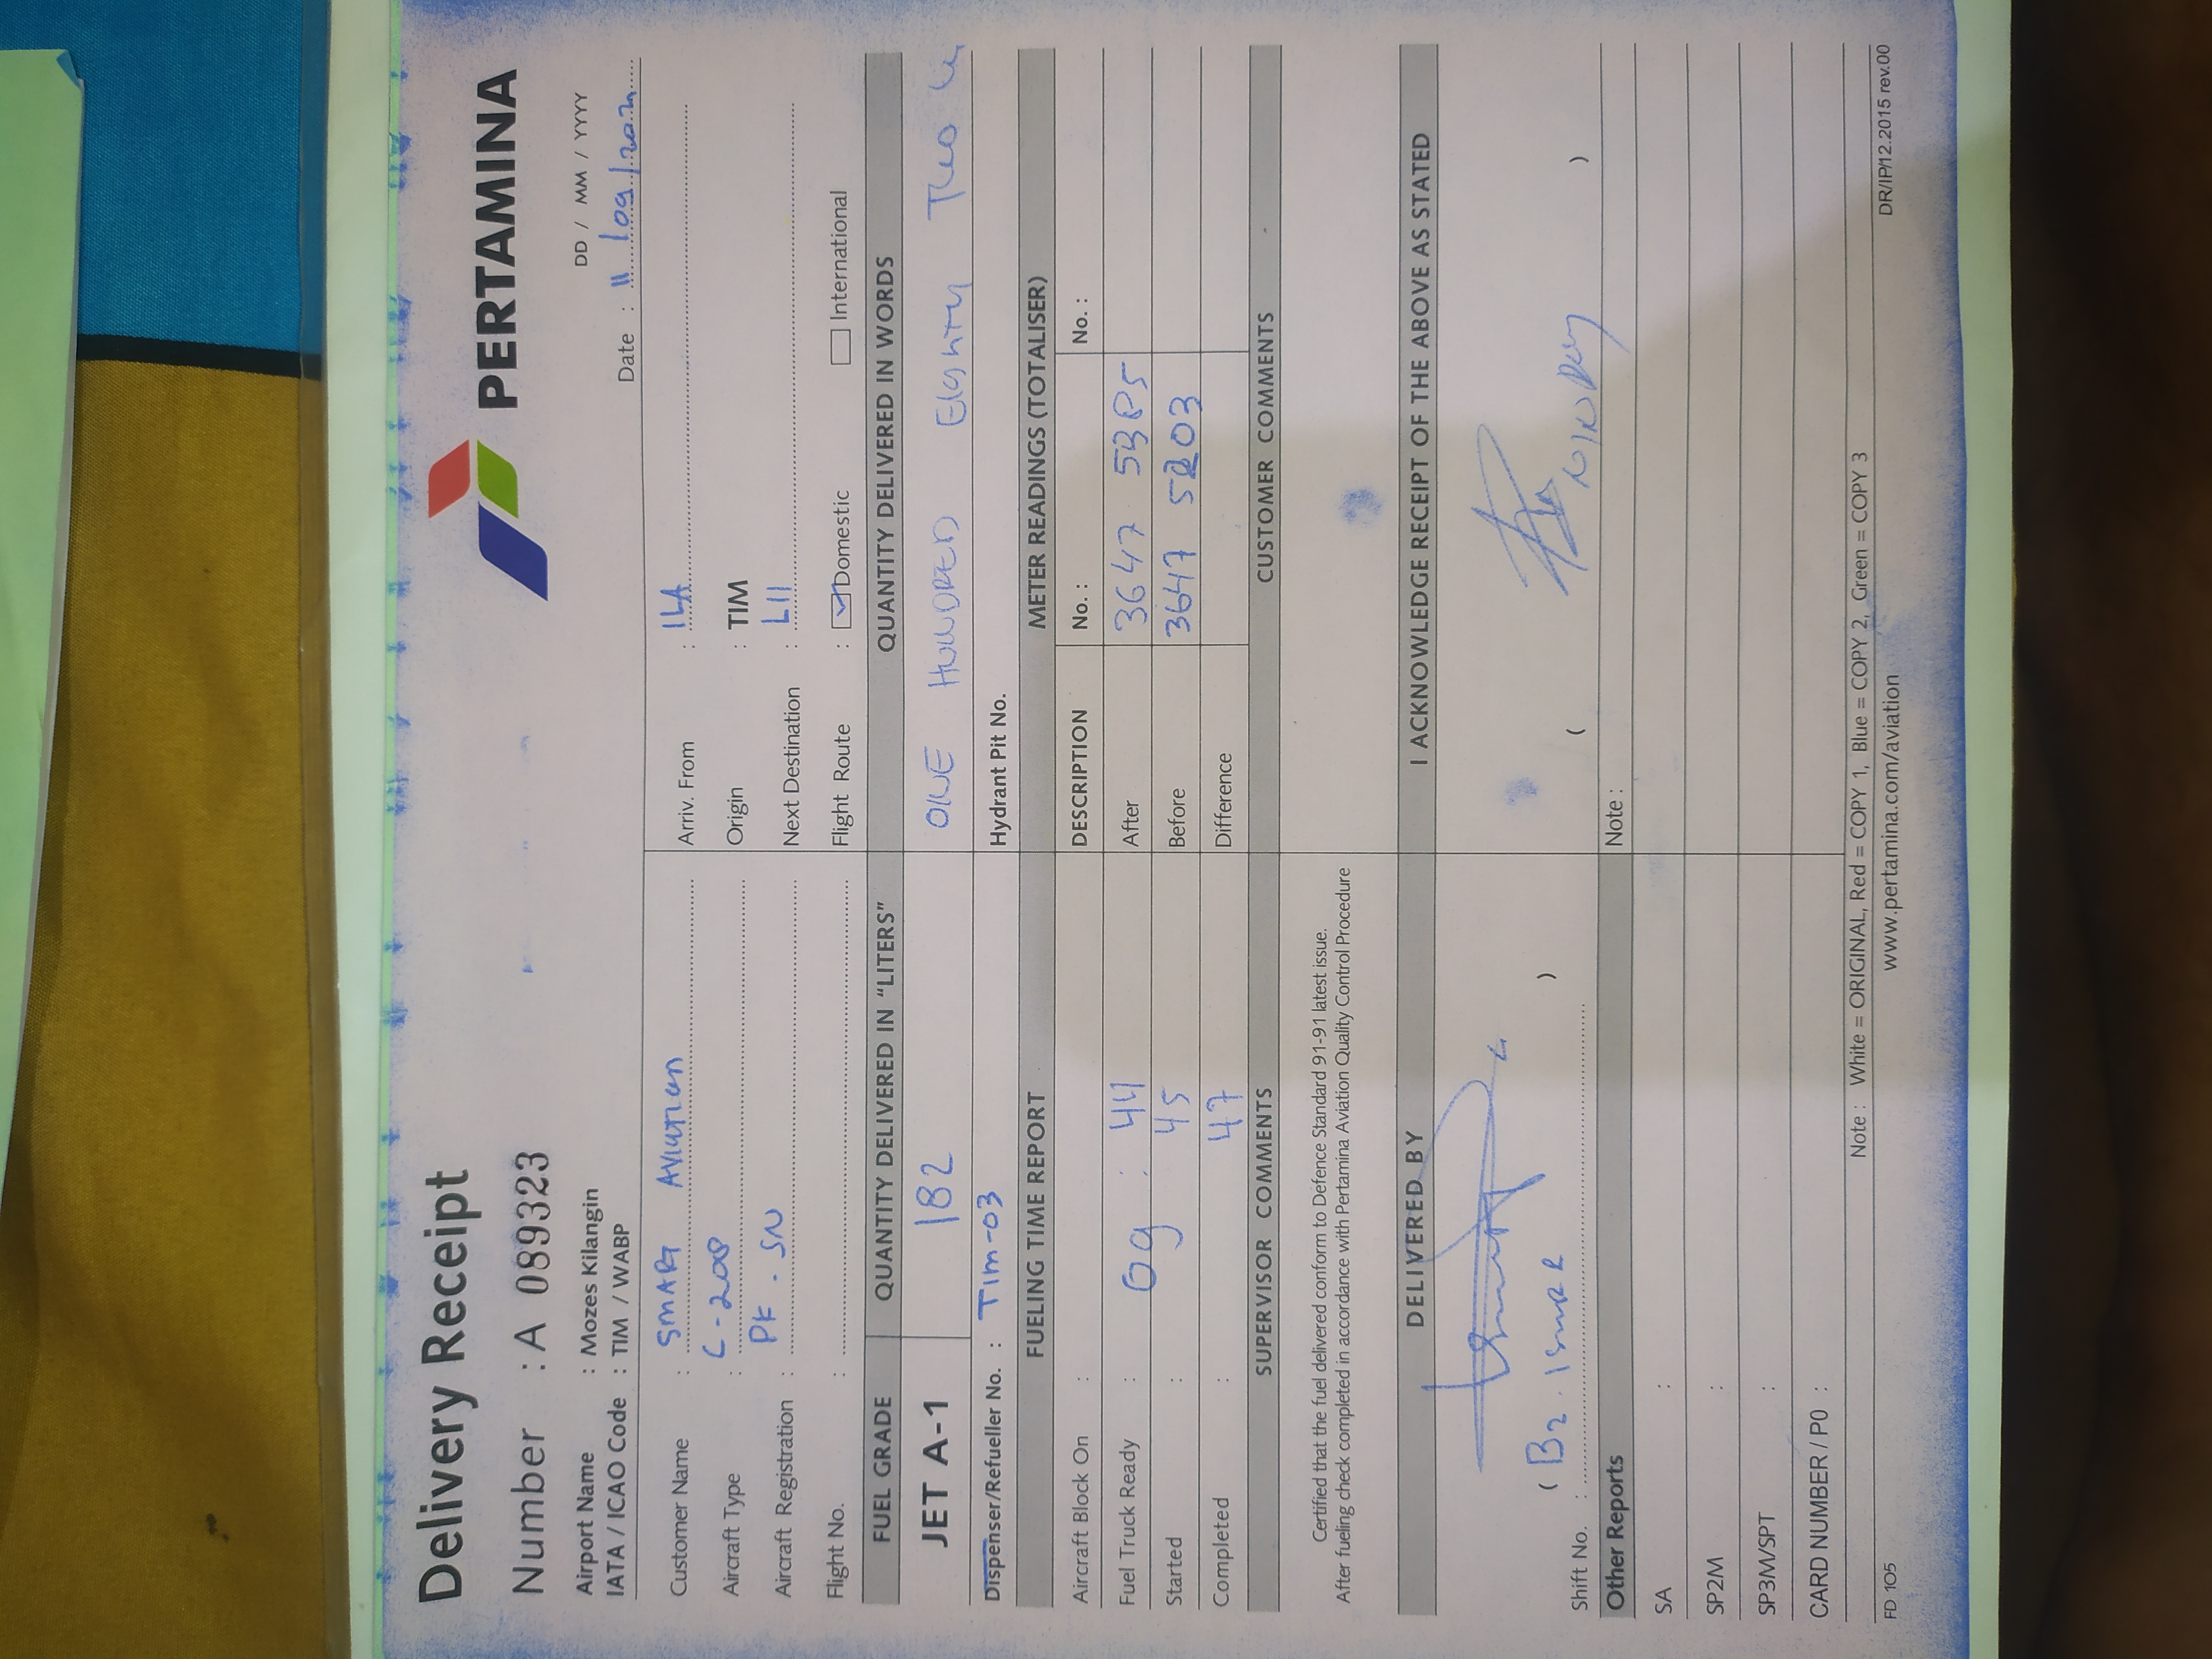 Delivery Receipt
PERTAMINA
Number : A 089323
Airport Name : Mozes Kilangin
IATA / ICAO Code : TIM / WABP
DD / MM / YYYY
Date : 11/09/202
Customer Name : SMART AVIATION
Aircraft Type : C-208
Aircraft Registration : PK - SN
Flight No. :
Arriv. From : ILA
Origin : TIM
Next Destination : LII
Flight Route : Domestic International
FUEL GRADE QUANTITY DELIVERED IN "LITERS" QUANTITY DELIVERED IN WORDS
JET A-1 182 ONE HUNDRED EIGHTY TWO
Dispenser/Refueller No. : TIM-03 Hydrant Pit No.
FUELING TIME REPORT METER READINGS (TOTALISER)
Aircraft Block On : DESCRIPTION No. : No. :
Fuel Truck Ready : 09 : 44 After 3647 5385
Started : 45 Before 3647 5203
Completed : 47 Difference
SUPERVISOR COMMENTS CUSTOMER COMMENTS
Certified that the fuel delivered conform to Defence Standard 91-91 latest issue.
After fueling check completed in accordance with Pertamina Aviation Quality Control Procedure
DELIVERED BY I ACKNOWLEDGE RECEIPT OF THE ABOVE AS STATED
( )
( )
Shift No. :
Other Reports Note :
SA :
SP2M :
SP3M/SPT :
CARD NUMBER / P0 :
Note : White = ORIGINAL, Red = COPY 1, Blue = COPY 2, Green = COPY 3
FD 105 www.pertamina.com/aviation DR/IP/12.2015 rev.00